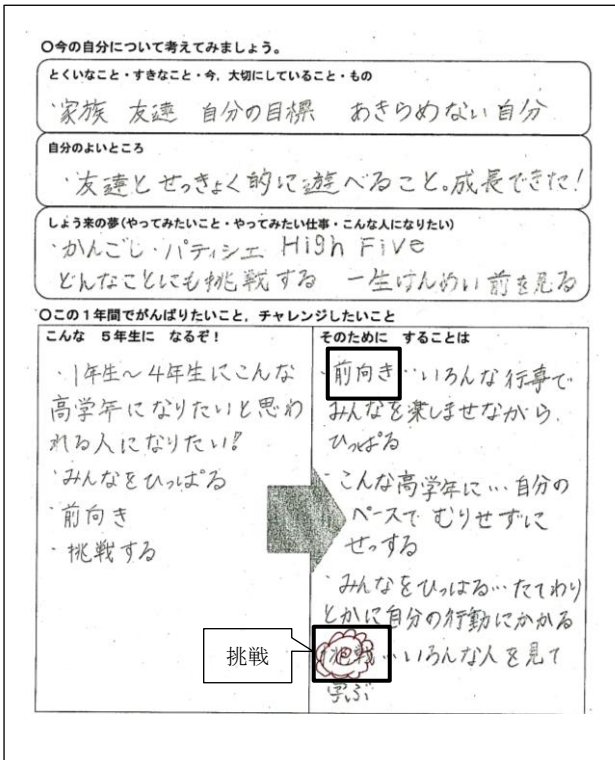 ○今の自分について考えてみましょう。
とくいなこと・すきなこと・今，大切にしていること・もの
・家族 友達 自分の目標 あきらめない自分
自分のよいところ
・友達とせっきょく的に遊べること。成長できた！
しょう来の夢(やってみたいこと・やってみたい仕事・こんな人になりたい)
・かんごし・パティシエ High Five
どんなことにも挑戦する 一生けんめい前を見る
○この１年間でがんばりたいこと，チャレンジしたいこと
こんな ５年生に なるぞ！
・1年生～4年生にこんな
高学年になりたいと思わ
れる人になりたい！
・みんなをひっぱる
・前向き
・挑戦する
そのために することは
・前向き…いろんな行事で
みんなを楽しませながら、
ひっぱる
・こんな高学年に…自分の
ペースで むりせずに
せっする
・みんなをひっぱる…たてわり
とかに自分の行動にかかる
挑戦…いろんな人を見て
学ぶ
挑戦